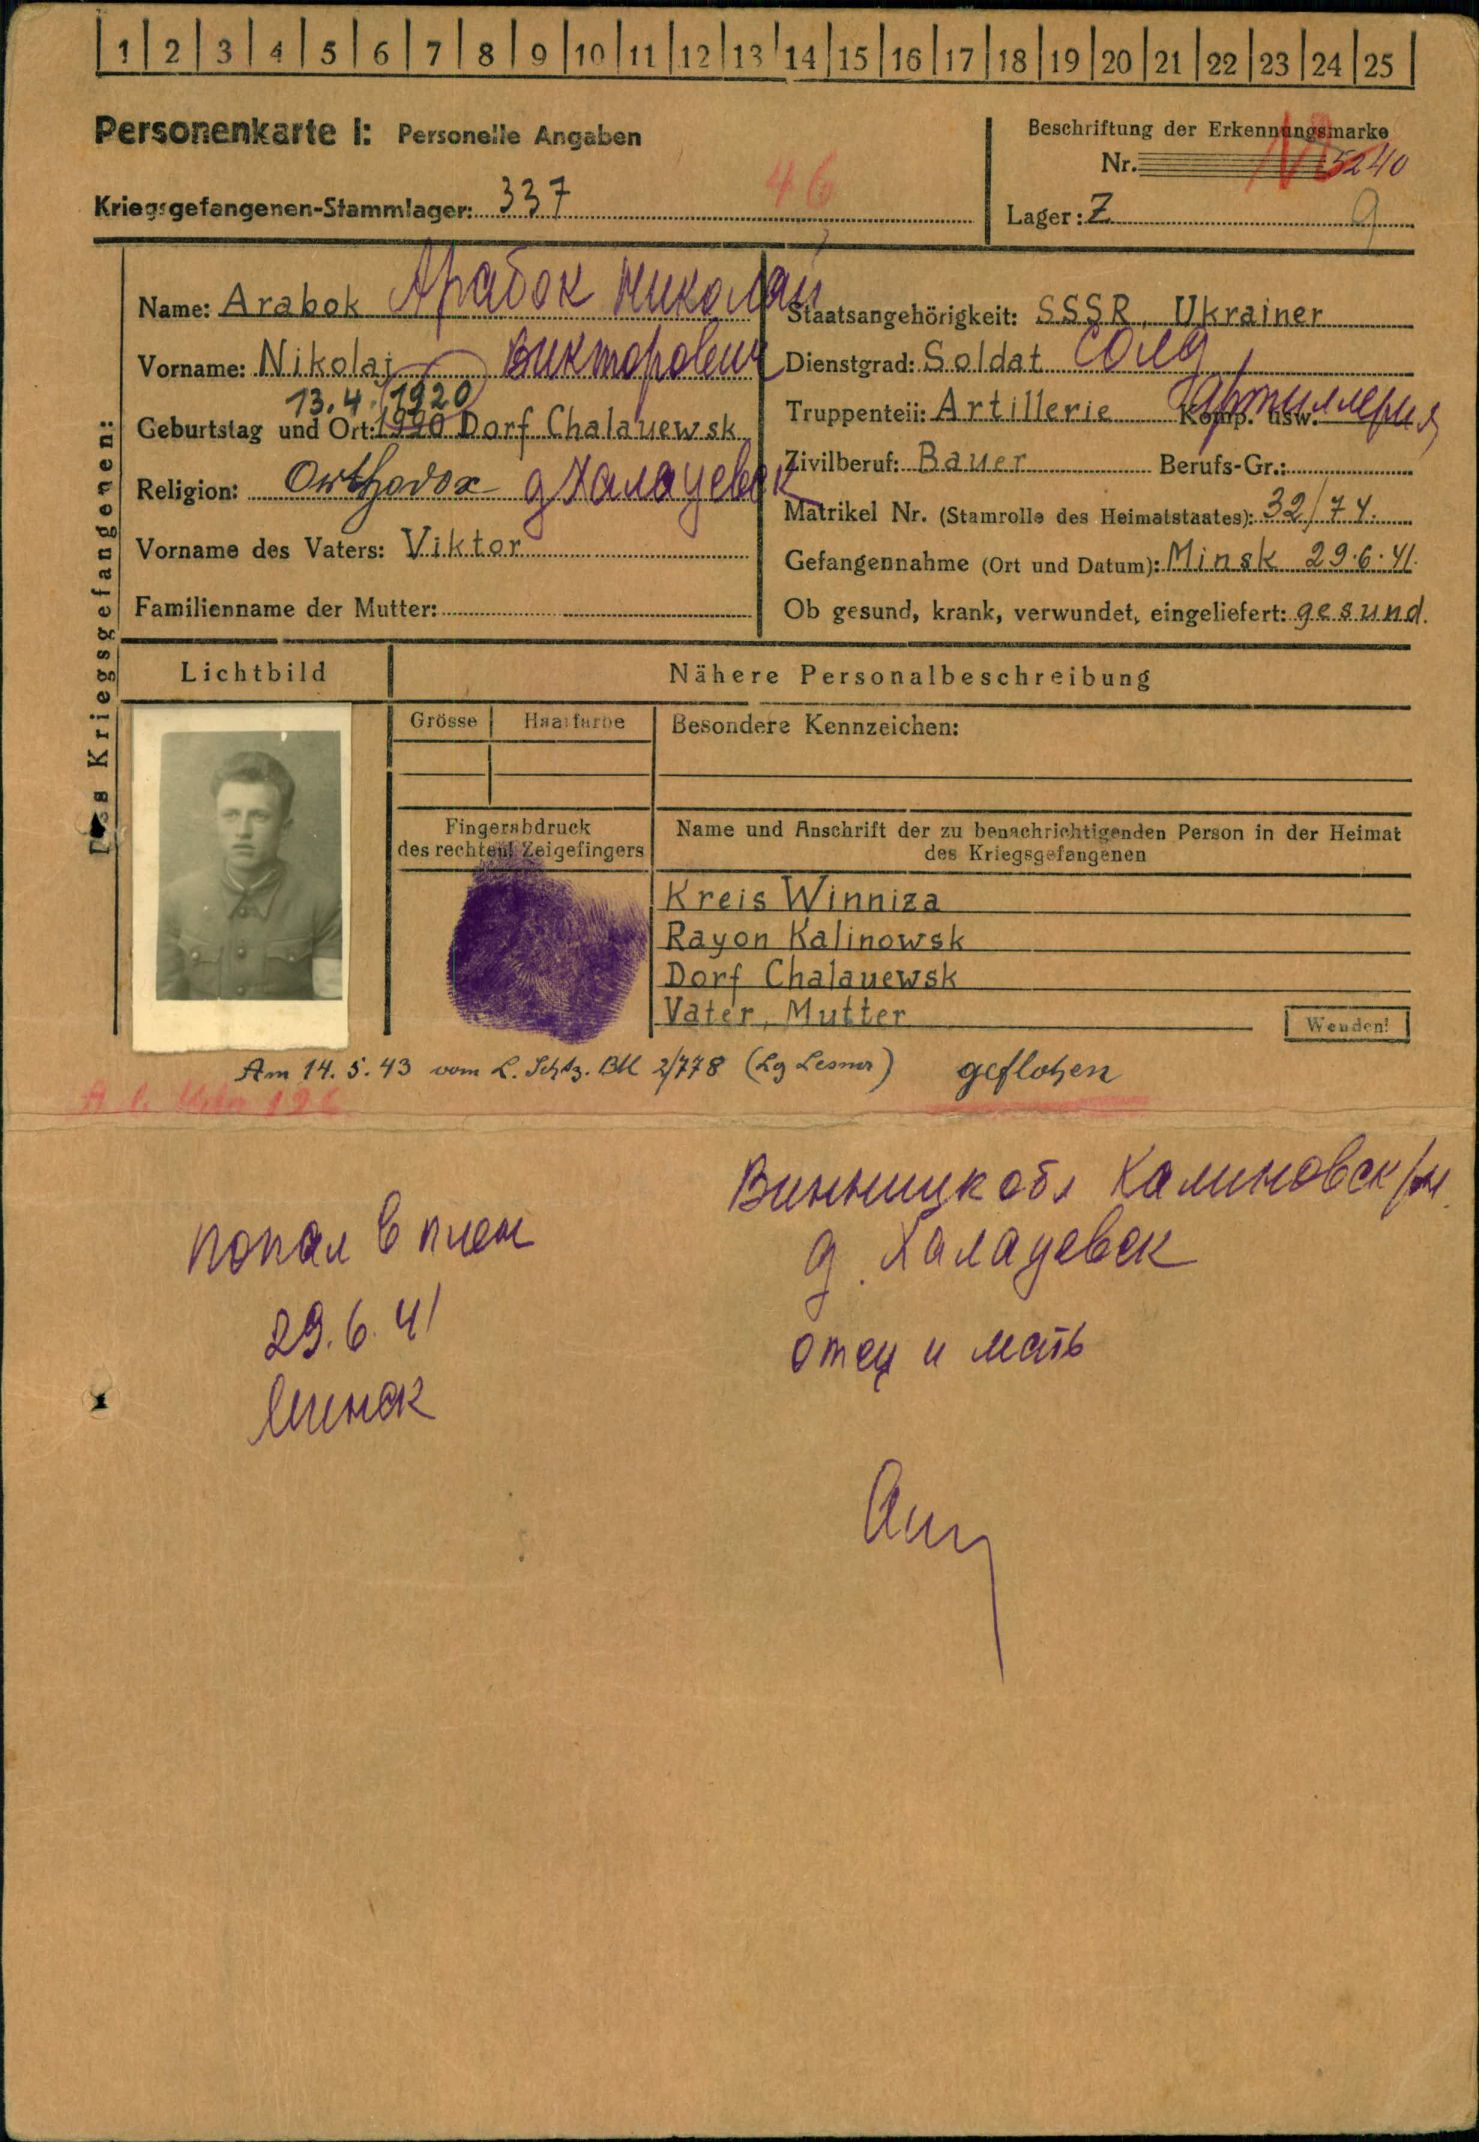 1 2 3 4 5 6 7 8 9 10 11 12 13 14 15 16 17 18 19 20 21 22 23 24 25
Personenkarte I: Personelle Angaben
Beschriftung der Erkennungsmarke
Nr. 5240
Kriegsgefangenen-Stammlager: 337
46
Lager: Z
9
Des Kriegsgefangenen:
Name: Arabok Арабок Николай
Vorname: Nikolaj Викторович
13.4.1920
Geburtstag und Ort: 1920 Dorf Chalauewsk
Religion: Orthodox д Халауевск
Vorname des Vaters: Viktor
Familienname der Mutter:
Staatsangehörigkeit: SSSR, Ukrainer
Dienstgrad: Soldat Солд
Truppenteil: Artillerie Komp. usw. Артиллерия
Zivilberuf: Bauer Berufs-Gr.:
Matrikel Nr. (Stamrolle des Heimatstaates): 32/74.
Gefangennahme (Ort und Datum): Minsk 29.6.41.
Ob gesund, krank, verwundet, eingeliefert: gesund.
Lichtbild
Nähere Personalbeschreibung
Grösse Haarfarbe
Besondere Kennzeichen:
Fingerabdruck
des rechten Zeigefingers
Name und Anschrift der zu benachrichtigenden Person in der Heimat
des Kriegsgefangenen
Kreis Winniza
Rayon Kalinowsk
Dorf Chalauewsk
Vater, Mutter
Wenden!
Am 14. 5. 43 vom L. Schtz. Btl 2/778 geflohen
попал в плен
29.6.41
Минск
Винницк обл Калиновск
д. Халауевск
отец и мать